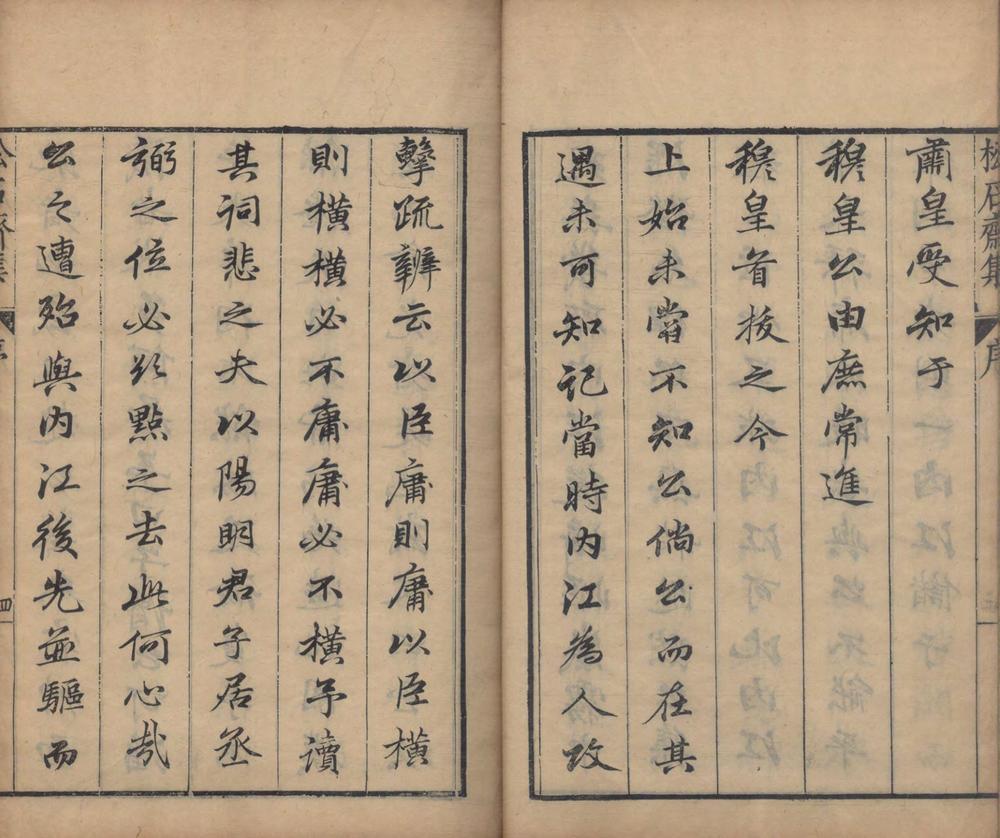 松石齋集
序
肅皇受知于
穆皇公由庶常進
穆皇首拔之今
上始未嘗不知公倘公而在其
遇未可知記當時內江為人攻
擊疏辨云以臣庸則庸以臣橫
則橫橫必不庸庸必不橫予讀
其詞悲之夫以陽明君子居丞
弼之位必欲點之去此何心哉
公之遭殆與內江後先並驅而
四